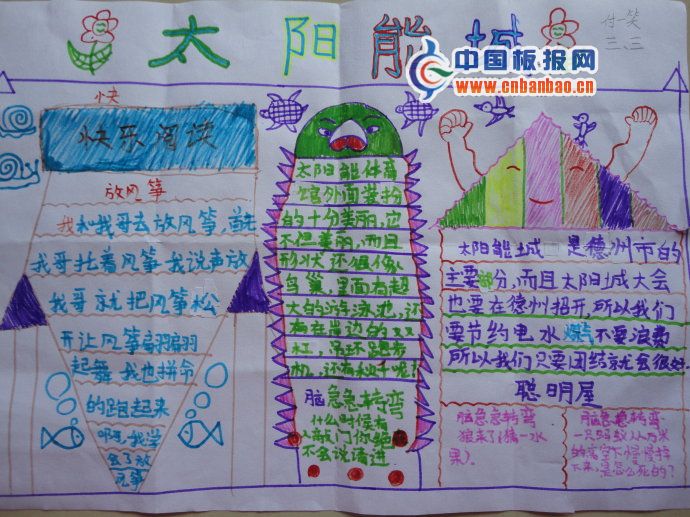 太阳能城
付一笑
三、三
中国板报网
www.cnbanbao.cn
快
快乐阅读
放风筝
我和我哥去放风筝,首先
我哥扯着风筝我说声放
我哥就把风筝松
开让风筝翩翩
起舞我也拼命
的跑起来
啊,我学
会了放
风筝
太阳能体育
馆外面装扮
的十分美丽,它
不但美丽,而且
形状还很像
鸟巢,里面有超
大的游泳池,还
有在出边的双
杠,吊环跑步
机,还有秋千呢?
脑急急转弯
什么时候有
人敲门你绝
不会说请进
太阳能城 是德州市的
主要部分,而且太阳城大会
也要在德州招开,所以我们
要节约电水燃气不要浪费
所以我们只要团结就会很好
聪明屋
脑急急转弯
狼来了(猜一水
果)。
脑急急转弯
一只蚂蚁从万米
的高空下慢慢掉
下来,是怎么死的?